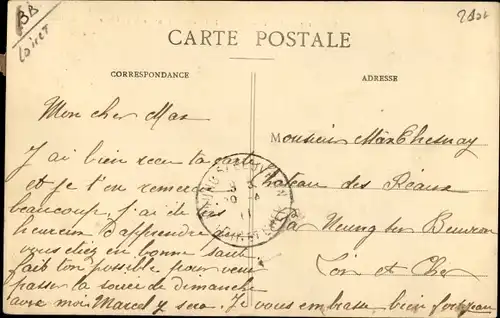 BB
Loiret
CARTE POSTALE
CORRESPONDANCE
ADRESSE
Mon cher Max
J'ai bien recu ta carte
et je t'en remercie
beaucoup. J'ai été très
heureux d'apprendre que
vous étiez en bonne santé
fait ton possible pour venir
passer la soirée de dimanche
avec moi Marcel y sera. Je vous embrasse bien fort
Monsieur Max Chesnay
Chateau des Réaux
par Neung sur Beuvron
Loir et Cher